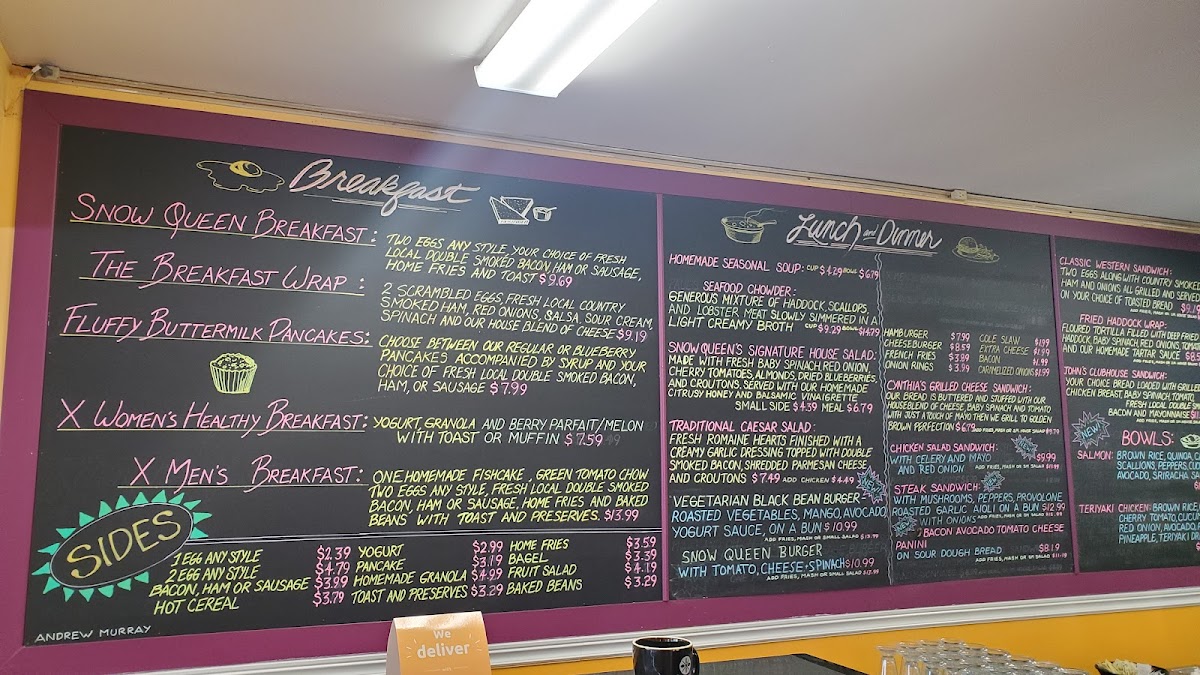 Breakfast
SNOW QUEEN BREAKFAST:
TWO EGGS ANY STYLE, YOUR CHOICE OF FRESH
LOCAL DOUBLE SMOKED BACON, HAM OR SAUSAGE,
HOME FRIES AND TOAST $9.69
THE BREAKFAST WRAP :
2 SCRAMBLED EGGS, FRESH LOCAL COUNTRY
SMOKED HAM, RED ONIONS, SALSA, SOUR CREAM,
SPINACH AND OUR HOUSE BLEND OF CHEESE $9.19
FLUFFY BUTTERMILK PANCAKES:
CHOOSE BETWEEN OUR REGULAR OR BLUEBERRY
PANCAKES ACCOMPANIED BY SYRUP AND YOUR
CHOICE OF FRESH LOCAL DOUBLE SMOKED BACON,
HAM, OR SAUSAGE $7.99
X WOMEN'S HEALTHY BREAKFAST:
YOGURT, GRANOLA AND BERRY PARFAIT/MELON
WITH TOAST OR MUFFIN $7.59
X MEN'S BREAKFAST:
ONE HOMEMADE FISHCAKE, GREEN TOMATO CHOW
TWO EGGS ANY STYLE, FRESH LOCAL DOUBLE SMOKED
BACON, HAM OR SAUSAGE, HOME FRIES AND BAKED
BEANS WITH TOAST AND PRESERVES. $13.99
SIDES
1 EGG ANY STYLE $2.39
2 EGG ANY STYLE $4.79
BACON, HAM OR SAUSAGE $3.99
HOT CEREAL $3.79
YOGURT $2.99
PANCAKE $3.19
HOMEMADE GRANOLA $4.99
TOAST AND PRESERVES $3.29
HOME FRIES $3.59
BAGEL $3.39
FRUIT SALAD $4.19
BAKED BEANS $3.29
ANDREW MURRAY
Lunch and Dinner
HOMEMADE SEASONAL SOUP: CUP $4.29 BOWL $6.79
SEAFOOD CHOWDER:
GENEROUS MIXTURE OF HADDOCK, SCALLOPS,
AND LOBSTER MEAT SLOWLY SIMMERED IN A
LIGHT CREAMY BROTH CUP $9.29 BOWL $14.79
SNOW QUEEN'S SIGNATURE HOUSE SALAD:
MADE WITH FRESH BABY SPINACH, RED ONION,
CHERRY TOMATOES, ALMONDS, DRIED BLUEBERRIES,
AND CROUTONS. SERVED WITH OUR HOMEMADE
CITRUSY HONEY AND BALSAMIC VINAIGRETTE
SMALL SIDE $4.39 MEAL $6.79
TRADITIONAL CAESAR SALAD:
FRESH ROMAINE HEARTS FINISHED WITH A
CREAMY GARLIC DRESSING TOPPED WITH DOUBLE
SMOKED BACON, SHREDDED PARMESAN CHEESE
AND CROUTONS $7.49 ADD CHICKEN $4.49
VEGETARIAN BLACK BEAN BURGER-
ROASTED VEGETABLES, MANGO, AVOCADO
YOGURT SAUCE, ON A BUN $10.99
ADD FRIES, MASH OR SMALL SALAD $13.99
SNOW QUEEN BURGER
WITH TOMATO, CHEESE + SPINACH $10.99
ADD FRIES, MASH OR SMALL SALAD $13.99
HAMBURGER $7.99
CHEESEBURGER $8.59
FRENCH FRIES $3.89
ONION RINGS $3.99
COLE SLAW $1.99
EXTRA CHEESE $1.99
BACON $1.99
CARAMELIZED ONIONS $1.99
CYNTHIA'S GRILLED CHEESE SANDWICH:
OUR BREAD IS BUTTERED AND STUFFED WITH OUR
HOUSE BLEND OF CHEESE, BABY SPINACH AND TOMATO
WITH JUST A TOUCH OF MAYO THEN WE GRILL TO GOLDEN
BROWN PERFECTION $6.79
CHICKEN SALAD SANDWICH:
WITH CELERY AND MAYO
AND RED ONION $9.99
STEAK SANDWICH:
WITH MUSHROOMS, PEPPERS, PROVOLONE
ROASTED GARLIC AIOLI ON A BUN $12.99
WITH ONIONS
BACON AVOCADO TOMATO CHEESE
PANINI
ON SOUR DOUGH BREAD $8.19
ADD FRIES, MASH OR SM SALAD $11.19
CLASSIC WESTERN SANDWICH:
TWO EGGS ALONG WITH COUNTRY SMOKED
HAM AND ONIONS ALL GRILLED AND SERVED
ON YOUR CHOICE OF TOASTED BREAD
FRIED HADDOCK WRAP:
FLOURED TORTILLA FILLED WITH DEEP FRIED
HADDOCK, BABY SPINACH, RED ONIONS, TOMATOES
AND OUR HOMEMADE TARTAR SAUCE
JOHN'S CLUBHOUSE SANDWICH:
YOUR CHOICE BREAD LOADED WITH GRILLED
CHICKEN BREAST, BABY SPINACH, TOMATO,
FRESH LOCAL DOUBLE
BACON AND MAYONNAISE
NEW
BOWLS:
SALMON: BROWN RICE, QUINOA,
SCALLIONS, PEPPERS,
AVOCADO, SRIRACHA
TERIYAKI CHICKEN: BROWN RICE,
CHERRY TOMATO,
RED ONION, AVOCADO,
PINEAPPLE, TERIYAKI
We
deliver